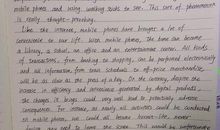 mobile phones and using working stick to see. This sort of phenomenon
is really thought-provoking.
Like the internet, mobile phones have brought a lot of
convenience to our life. With mobile phones, the home can become
a library, a school, an office and an entertainment center. All kinds
of transactions, from banking to shopping, can be performed electronically
and all information from train schedules to off-price merchandise,
will be as close as the press of a key. On the contrary, despite the
increase in efficiency and convenience generated by digital products,
the changes it brings could very well lead to potentially adverse
consequence. For instance, as nearly all activities would be conducted
on mobile phones, we could all become home-like, never
having any need to leave the room. This would be unfortunate